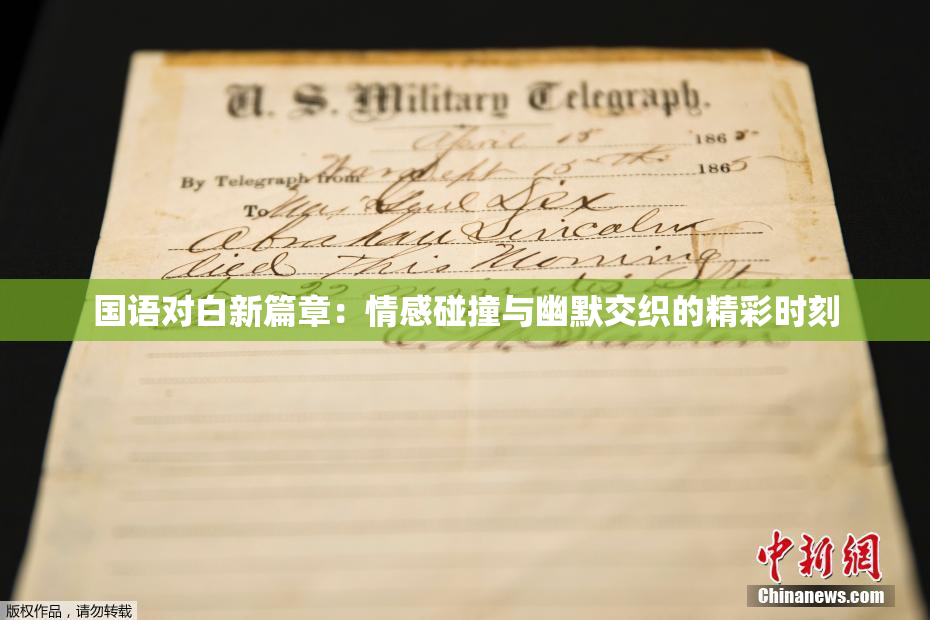 U. S. Military Telegraph.
April 15 1865
By Telegraph from War Dept 15th 1865
To Maj Genl Dix
Abraham Lincoln
died This Morning
22 minutes after
国语对白新篇章：情感碰撞与幽默交织的精彩时刻
E. M. Stanton
中新网
Chinanews.com
版权作品，请勿转载